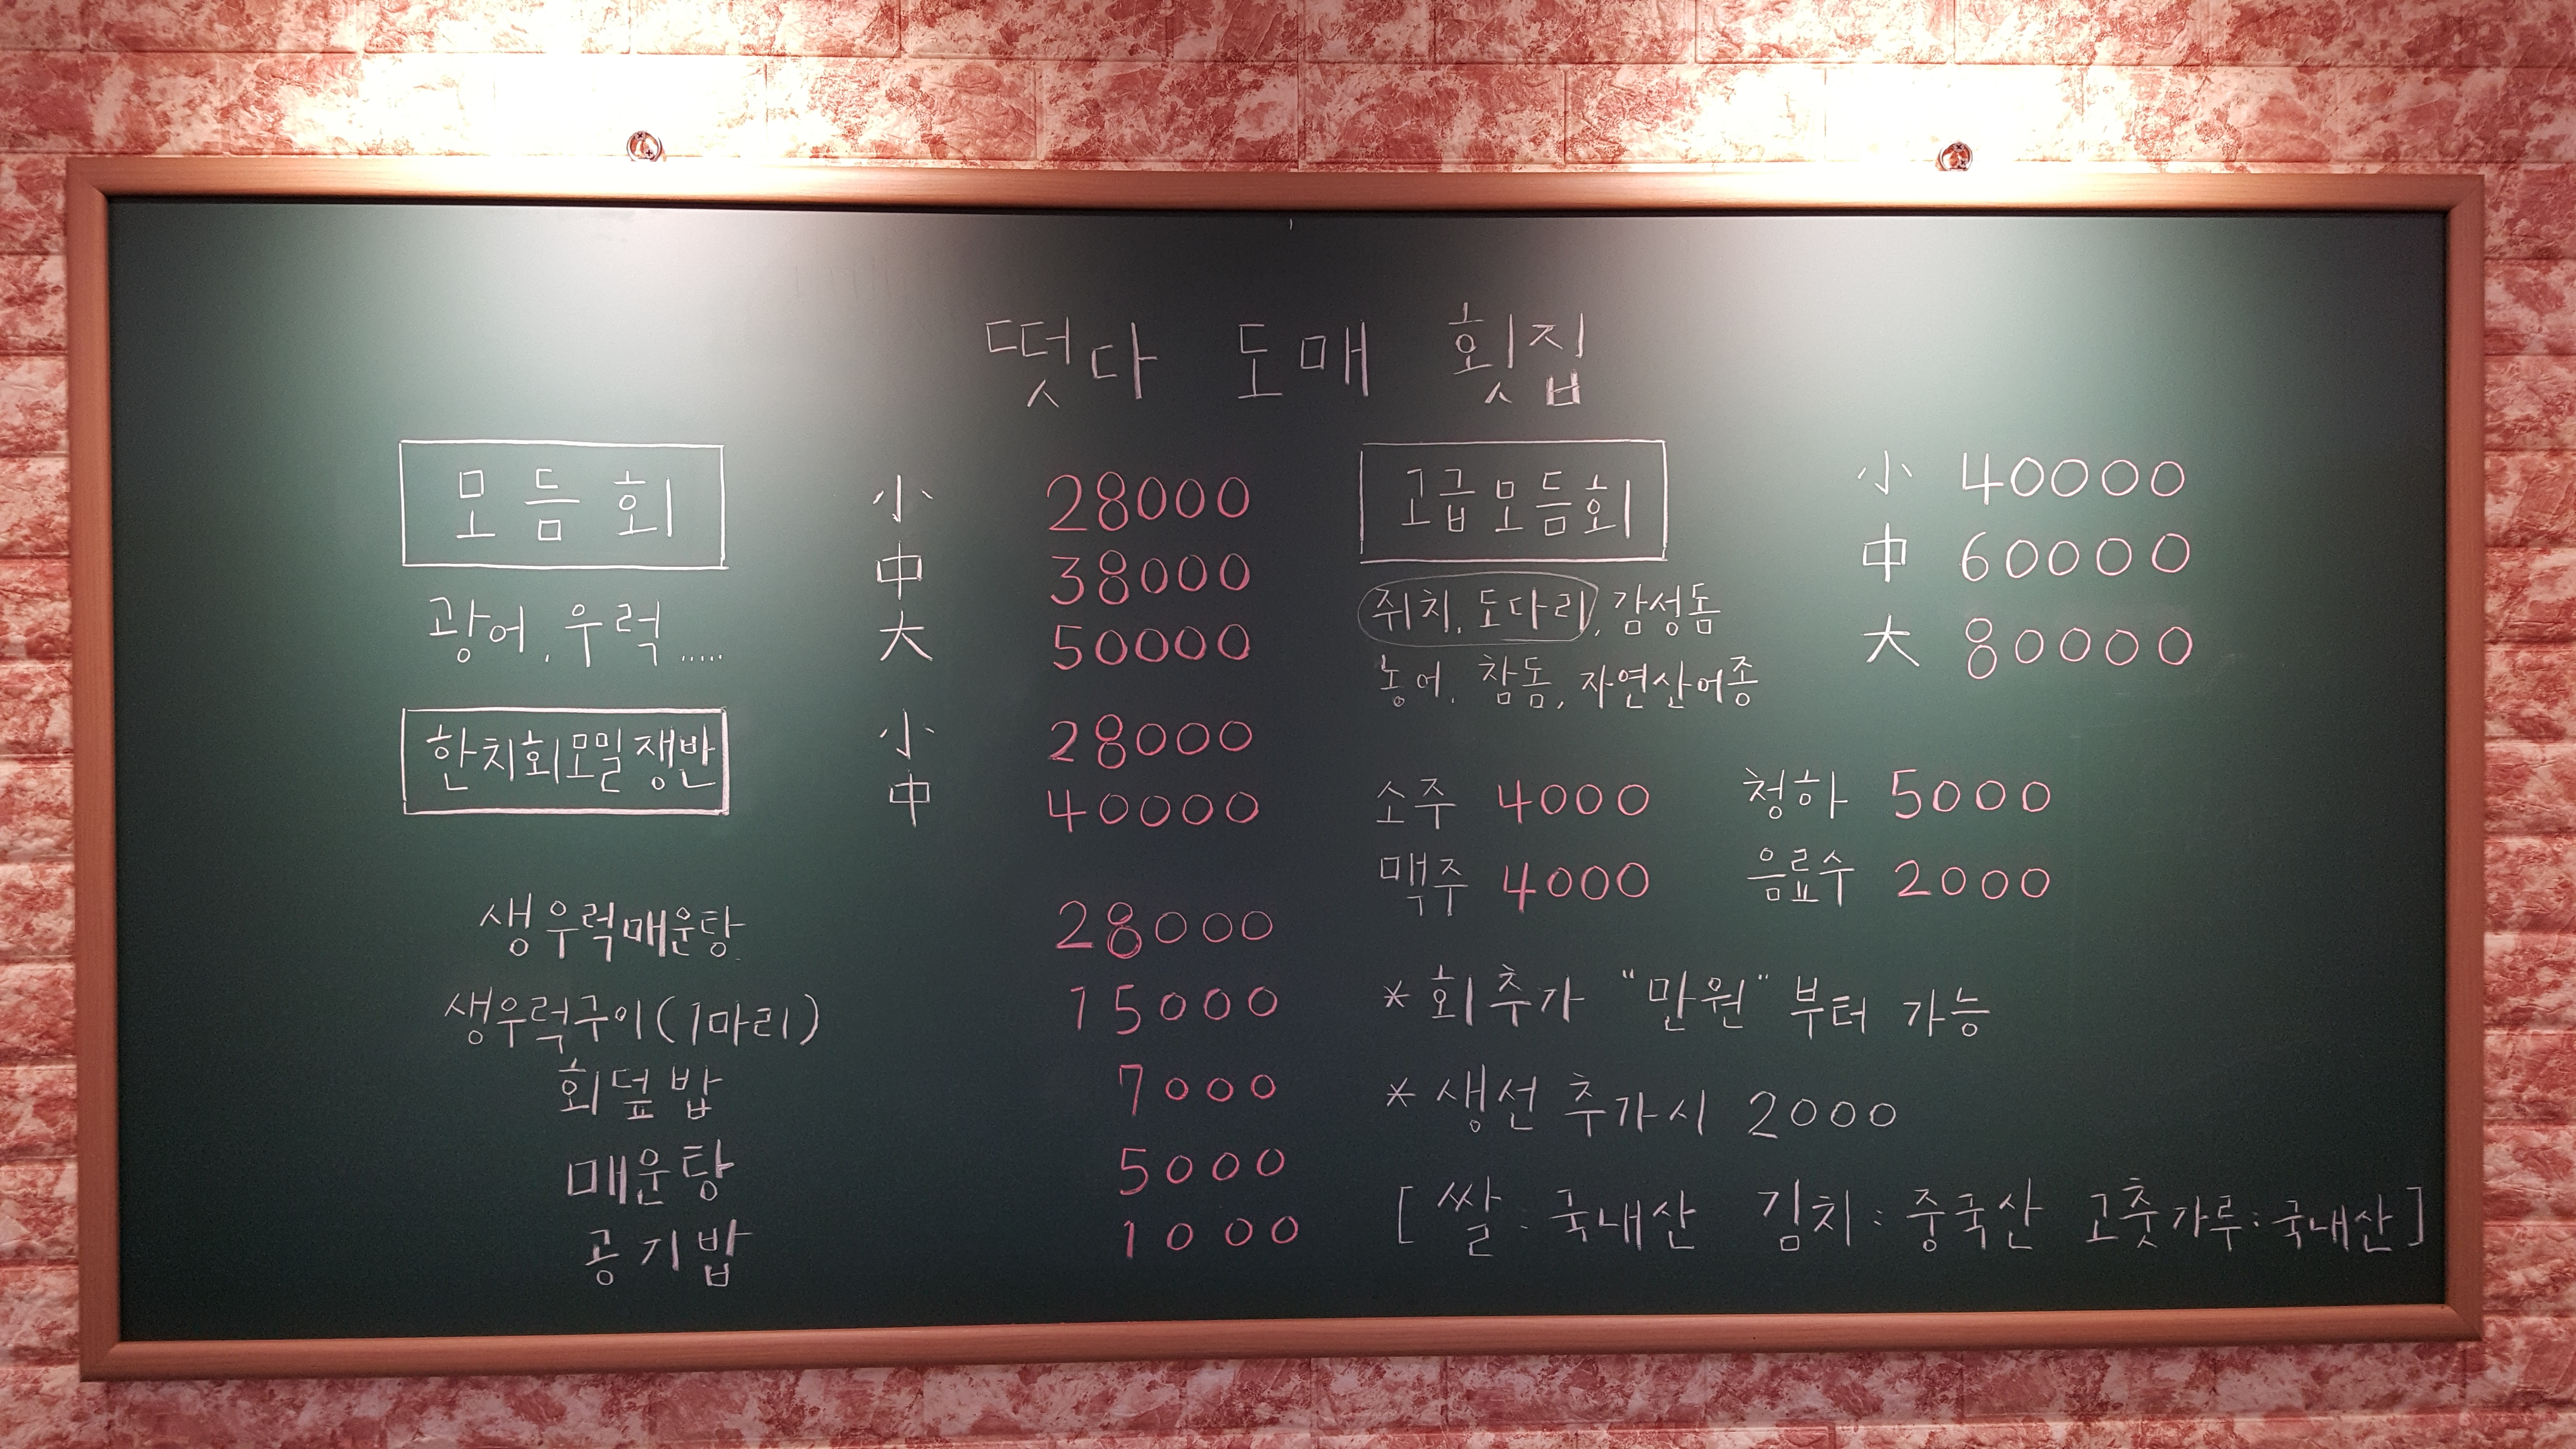 떳다 도매 횟집
모듬회 小 28000
中 38000
광어, 우럭..... 大 50000
한치회모밀쟁반 小 28000
中 40000
생우럭매운탕 28000
생우럭구이(1마리) 15000
회덮밥 7000
매운탕 5000
공기밥 1000
고급모듬회 小 40000
中 60000
쥐치, 도다리, 감성돔
大 80000
농어, 참돔, 자연산어종
소주 4000 청하 5000
맥주 4000 음료수 2000
* 회추가 "만원" 부터 가능
* 생선 추가시 2000
[ 쌀 : 국내산 김치 : 중국산 고춧가루 : 국내산 ]